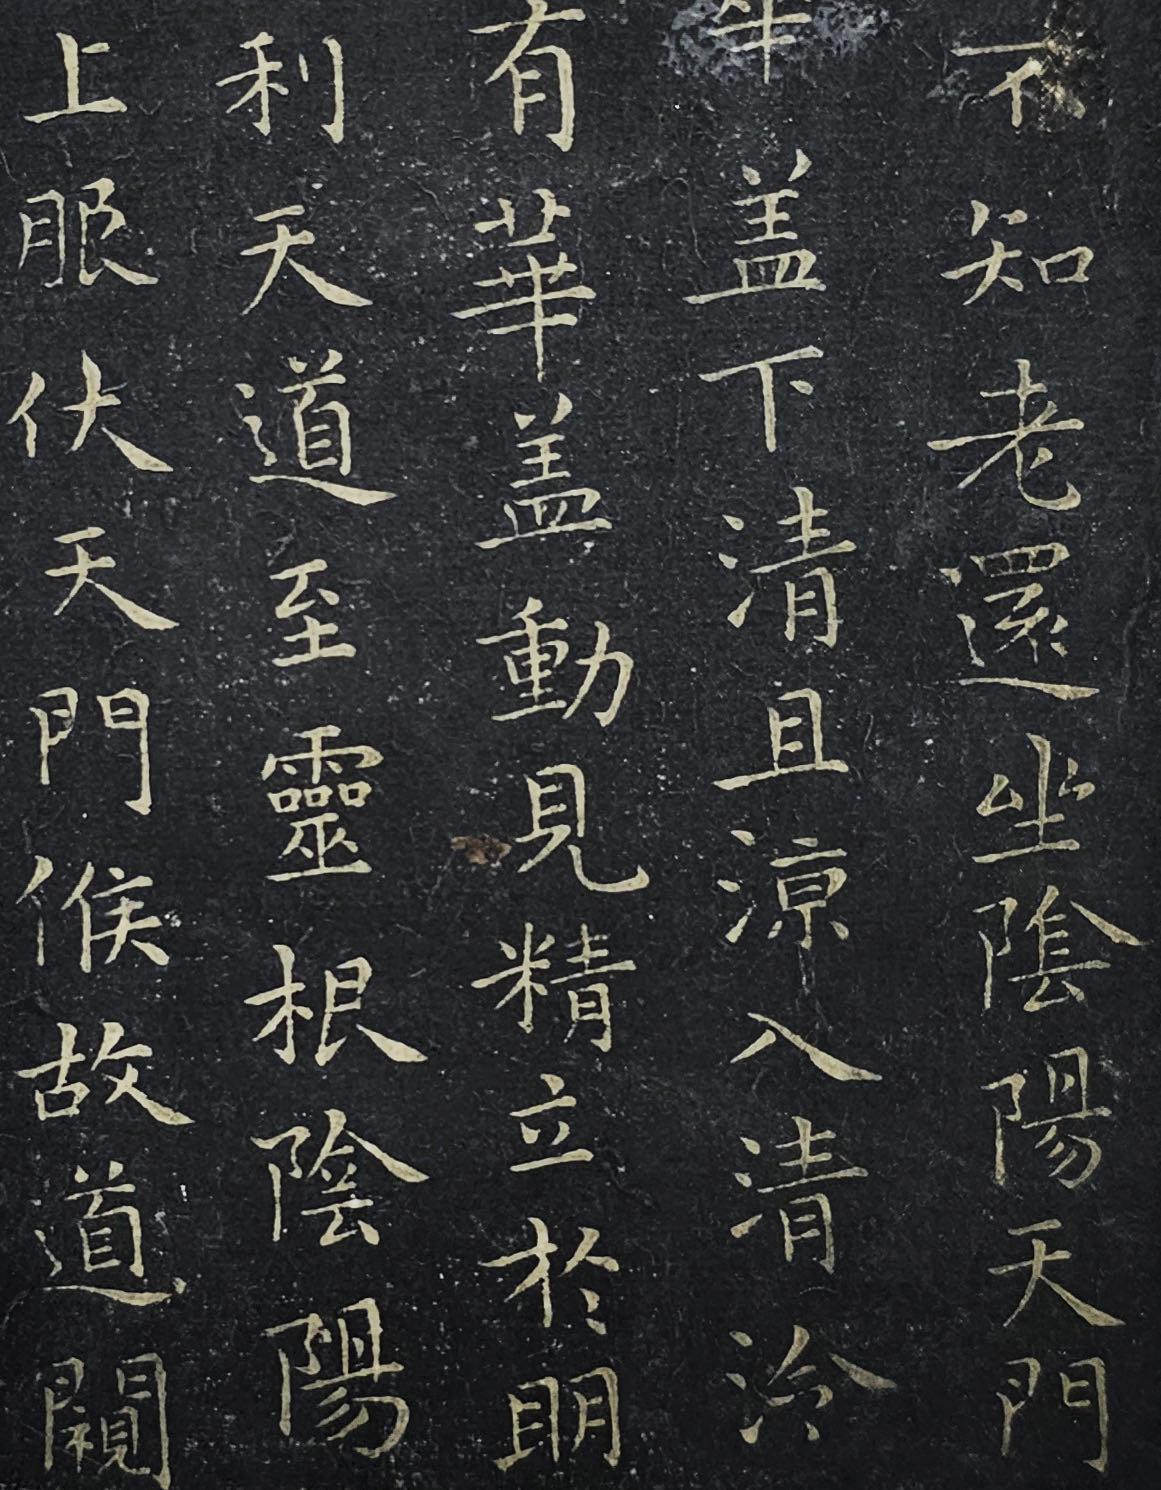 不知老還坐陰陽天門
華盖下清且涼入清泠
有華盖動見精立於明
利天道至靈根陰陽
上服伏天門候故道闚